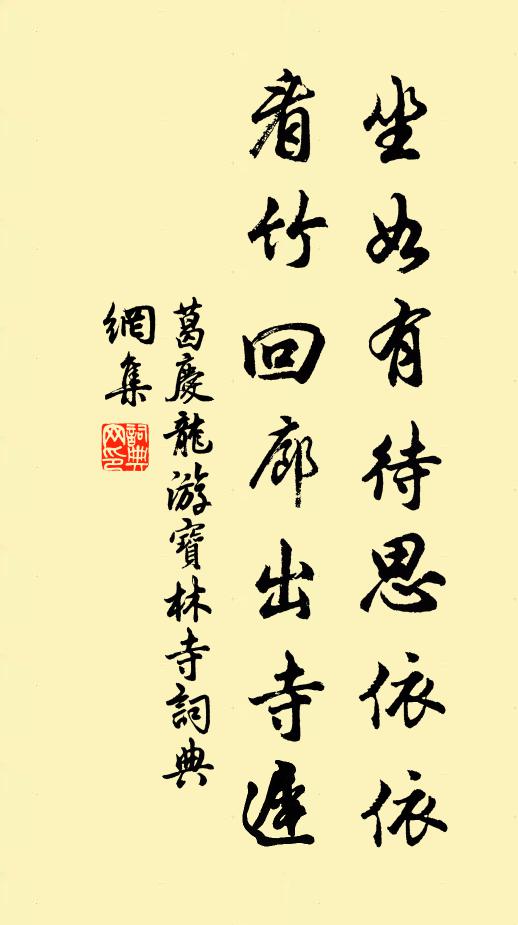 坐如有待思依依
看竹回廊出寺遲
葛慶龍游寶林寺詞典
網集
詞典
网印